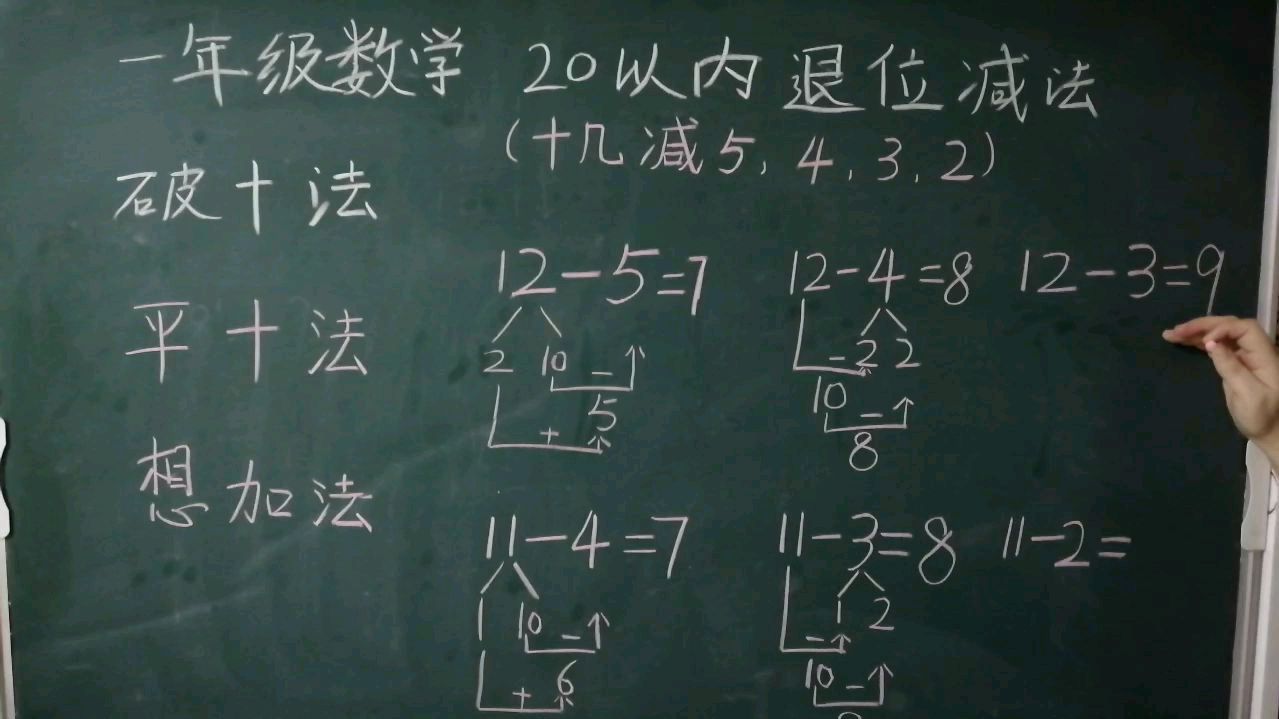 一年级数学 20以内退位减法
(十几减5,4,3,2)
破十法
平十法
想加法
12-5=7 12-4=8 12-3=9
2 10 - -2 2
5 10 -
+ 8
11-4=7 11-3=8 11-2=
1 10 - 1 2
-
+ 6 10 -